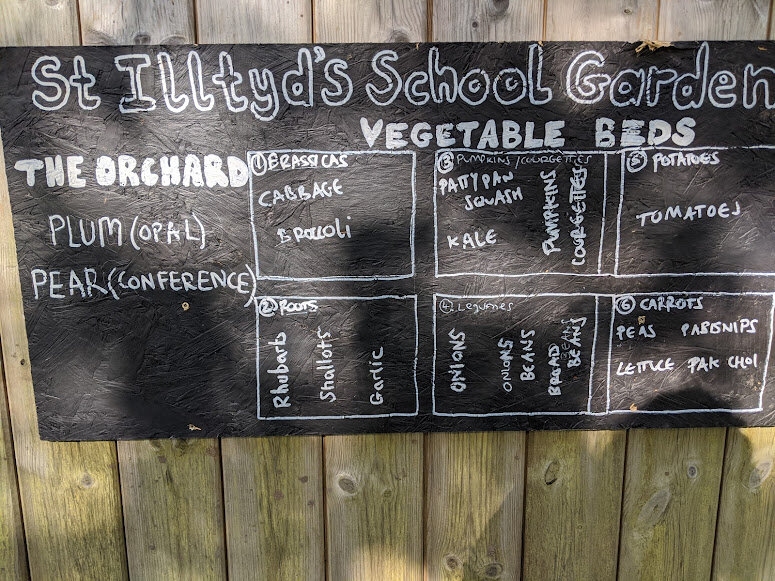 St Illtyd's School Garden
VEGETABLE BEDS
THE ORCHARD
PLUM (OPAL)
PEAR (CONFERENCE)
① BRASSICAS
CABBAGE
BROCCOLI
② ROOTS
Rhubarb
Shallots
Garlic
③ PUMPKINS/COURGETTES
PATTYPAN
SQUASH
KALE
PUMPKINS
COURGETTES
④ Legumes
ONIONS
ONIONS
BEANS
BROAD
BEANS
BEANS
⑤ POTATOES
TOMATOES
⑥ CARROTS
PEAS PARSNIPS
LETTUCE PAK CHOI